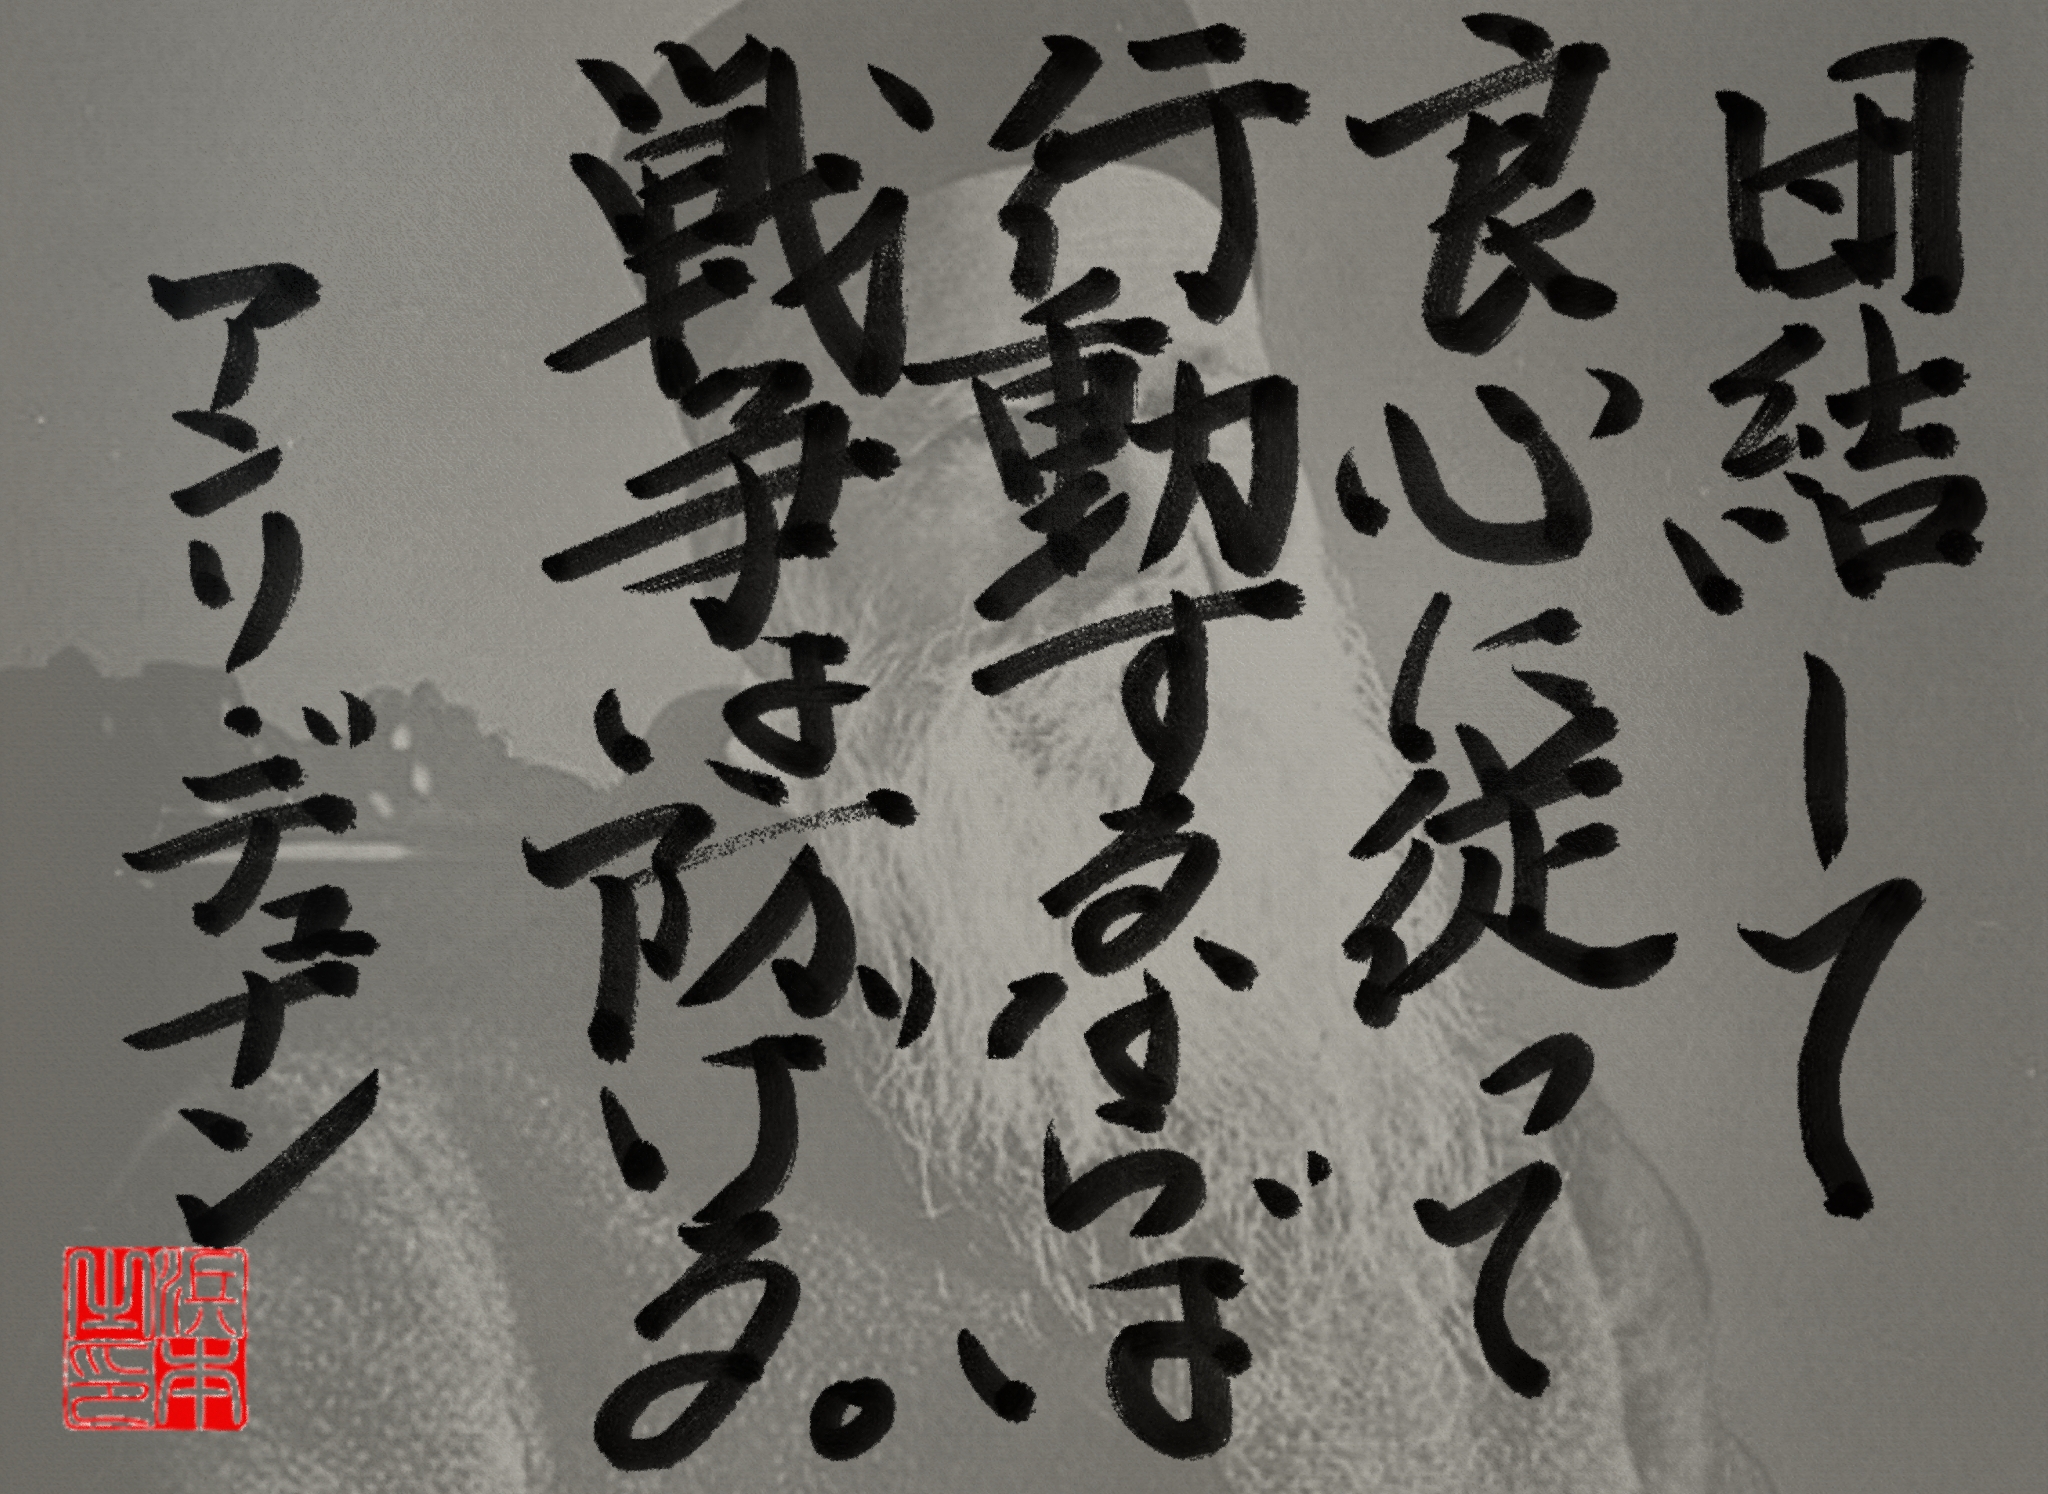 団結して
良心に従って
行動するならば
戦争は防げる。
アンリ・デュナン
浜本
之印